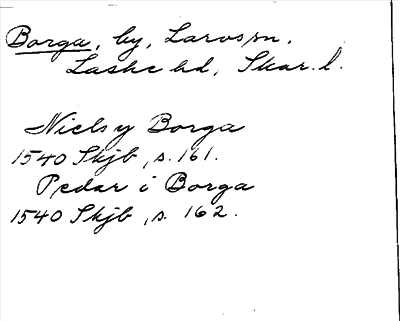 Borga, by, Larvs sn.
Laske hd, Skar. l.
Niels y Borga
1540 Skjb, s. 161.
Pedar i Borga
1540 Skjb, s. 162.